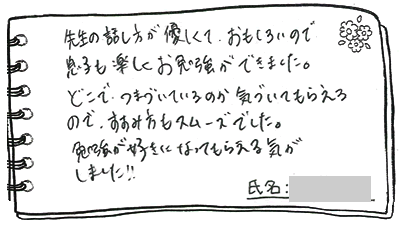 先生の話し方が優しくて、おもしろいので
息子も楽しくお勉強ができました。
どこで、つまづいているのか気づいてもらえる
ので、すすみ方もスムーズでした。
勉強が好きになってもらえる気が
しました!!
氏名: